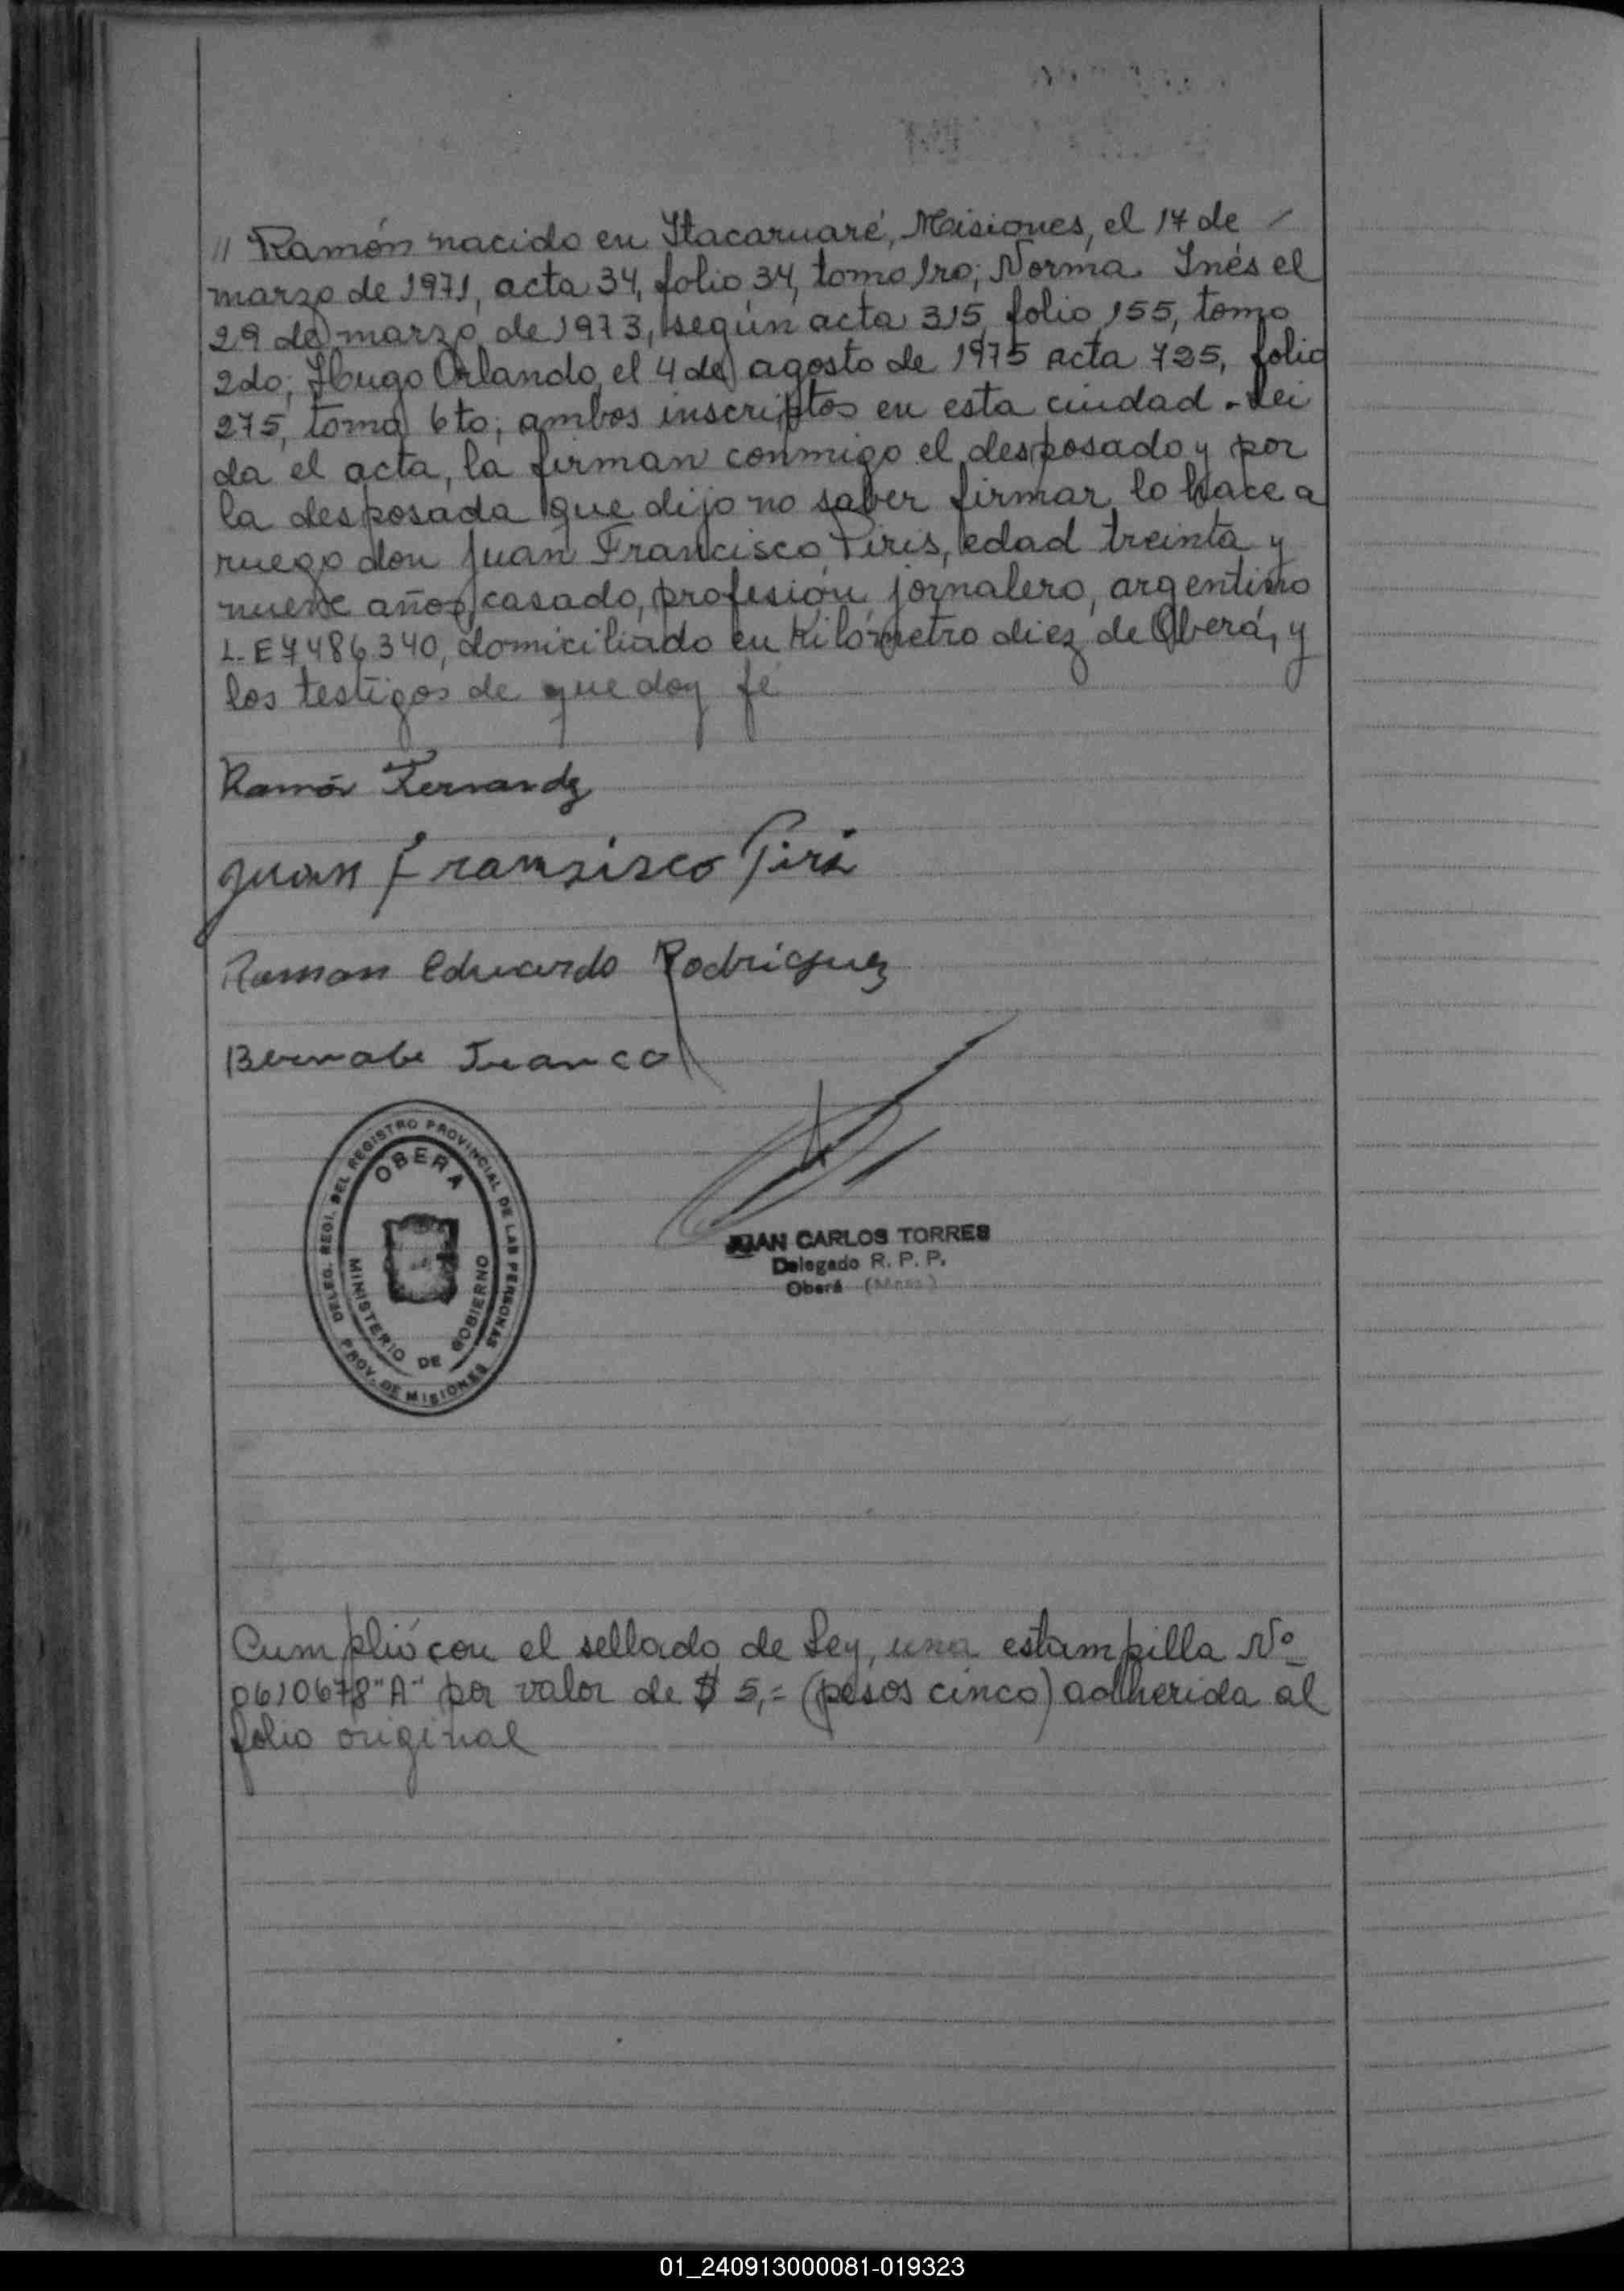 // Ramón nacido en Itacaruaré, Misiones, el 17 de /
marzo de 1971, acta 34, folio 34, tomo 1ro; Norma Inés el
29 de marzo de 1973, según acta 315, folio 155, tomo
2do; Hugo Orlando, el 4 de agosto de 1975 acta 725, folio
275, tomo 6to; ambos inscriptos en esta ciudad.-Lei
da el acta, la firman conmigo el desposado y por
la desposada que dijo no saber firmar, lo hace a
ruego don Juan Francisco Piris, edad treinta y
nueve años, casado, profesión jornalero, argentino
L.E 7.486.340, domiciliado en Kilómetro diez de Oberá, y
los testigos de que doy fé
Ramón Fernandz
Juan Fransisco Piris
Ramon Eduardo Rodriguez
Bernabe Franco
DELEG. REGI. DEL REGISTRO PROVINCIAL DE LAS PERSONAS
OBERA
MINISTERIO DE GOBIERNO
PROV. DE MISIONES
JUAN CARLOS TORRES
Delegado R. P. P.
Oberá (Mnes.)
Cumplió con el sellado de Ley, una estampilla Nº
0610678"A" por valor de $ 5,= (pesos cinco) adherida al
folio original
01_240913000081-019323